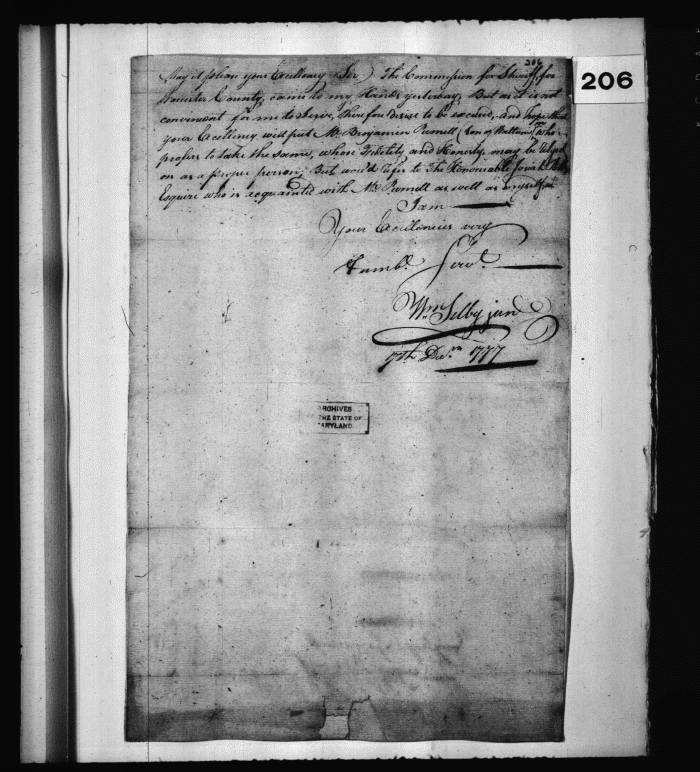 206
206
May it please your Excellency Sir) The Commission for Sheriff for
Worcester County, came to my Hands yesterday, But as it is not
convenient for me to Serve, therefore desire to be excused, and hope that
your Excellency will put Mr. Benjamin Purnell (Son of Walton) who
profers to take the same, whose Fidelity and Honesty, may be
on as a proper person, But would refer to The Honourable Josiah
Esquire who is acquainted with Mr. Purnell as well as myself
I am
Your Excellencies very
Humbl. Servt.
Wm. Selby junr
7th Decm. 1777
ARCHIVES
THE STATE OF
MARYLAND